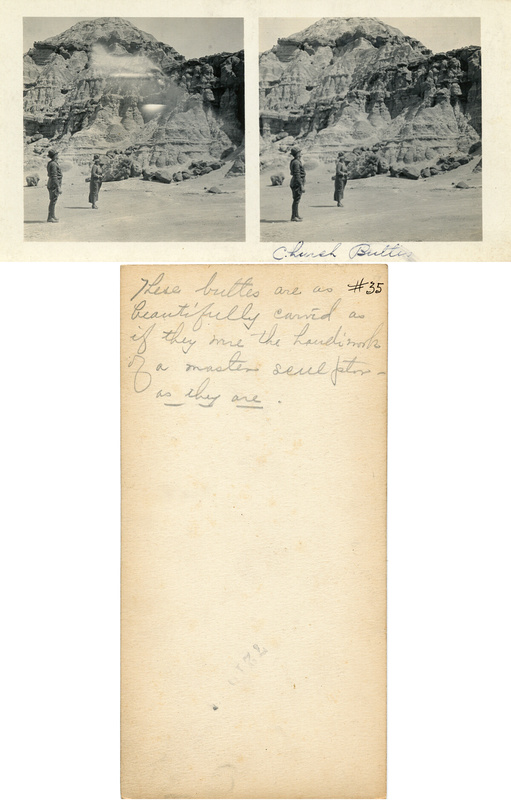 Church Buttes
#35
These buttes are as
beautifully carved as
if they were the handiwork
of a master sculptor -
as they are.